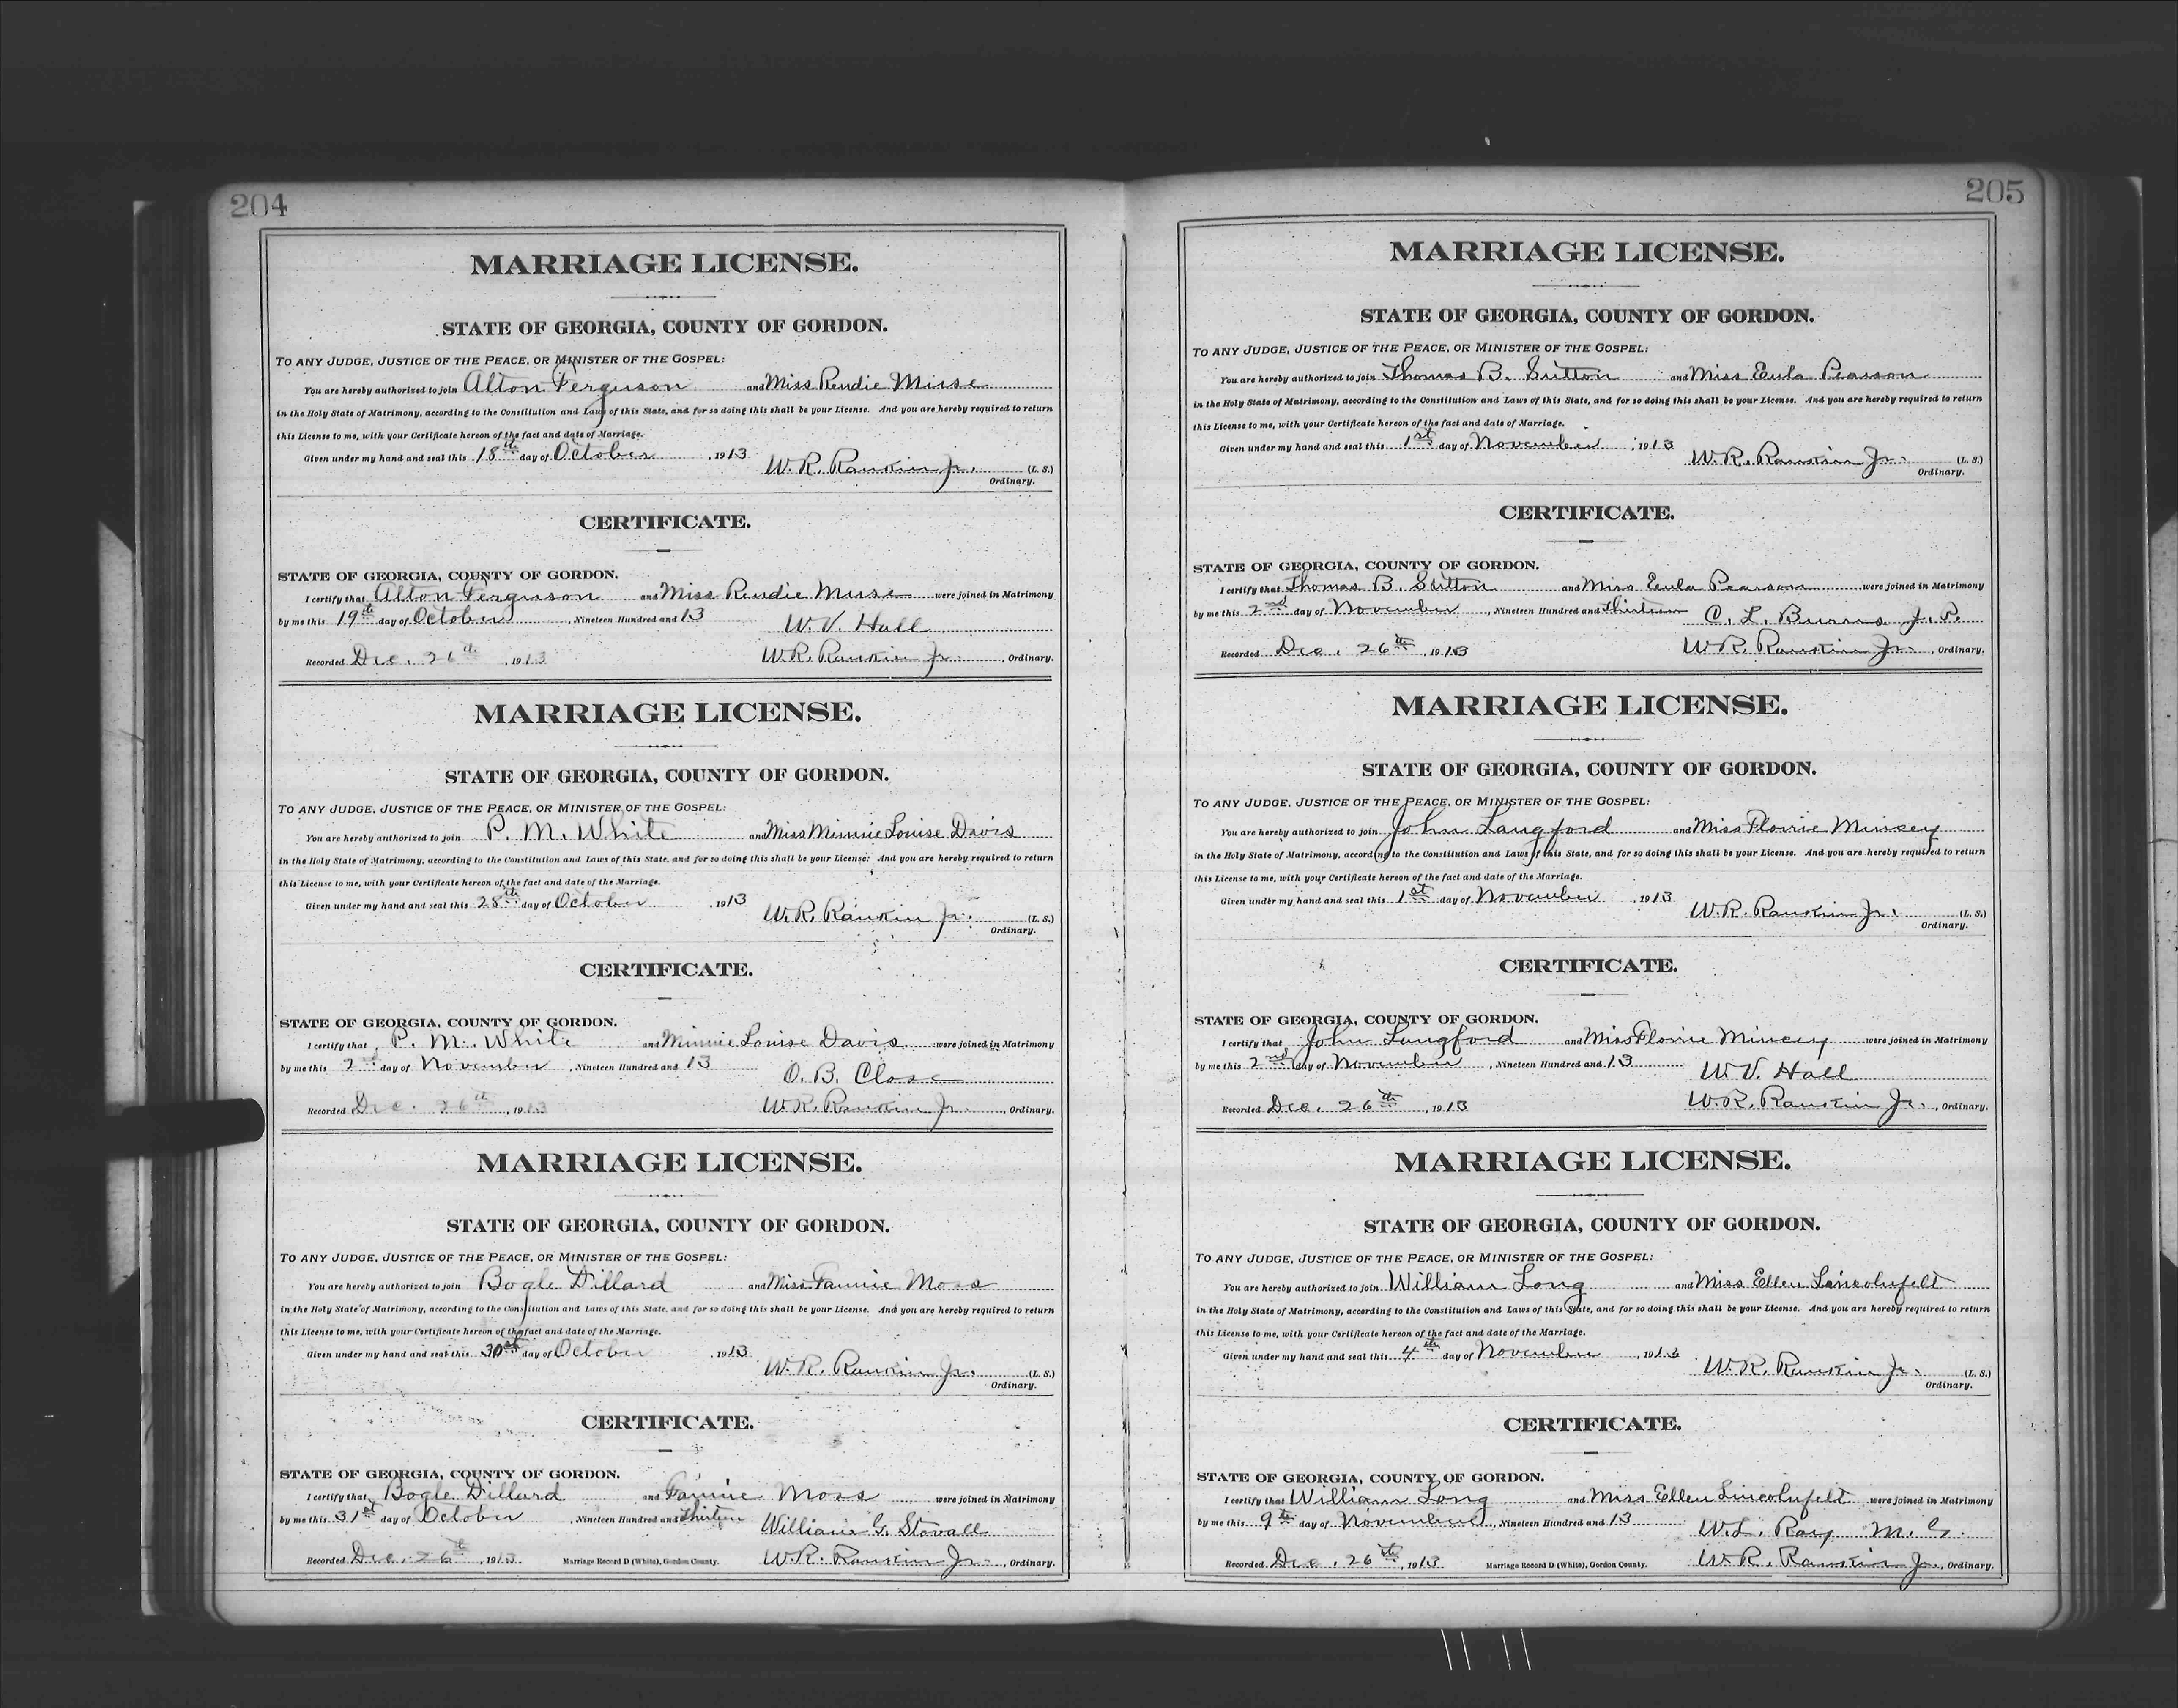 204
MARRIAGE LICENSE.
STATE OF GEORGIA, COUNTY OF GORDON.
TO ANY JUDGE, JUSTICE OF THE PEACE, OR MINISTER OF THE GOSPEL:
You are hereby authorized to join Alton Ferguson and Miss Rendie Muse
in the Holy State of Matrimony, according to the Constitution and Laws of this State, and for so doing this shall be your License. And you are hereby required to return
this License to me, with your Certificate hereon of the fact and date of Marriage.
Given under my hand and seal this 18th day of October, 1913
W. R. Rankin Jr. (L. S.)
Ordinary.
CERTIFICATE.
STATE OF GEORGIA, COUNTY OF GORDON.
I certify that Alton Ferguson and Miss Rendie Muse were joined in Matrimony
by me this 19th day of October, Nineteen Hundred and 13 W. V. Hall
Recorded Dec. 26th, 1913 W. R. Rankin Jr., Ordinary.
MARRIAGE LICENSE.
STATE OF GEORGIA, COUNTY OF GORDON.
TO ANY JUDGE, JUSTICE OF THE PEACE, OR MINISTER OF THE GOSPEL:
You are hereby authorized to join P. M. White and Miss Minnie Louise Davis
in the Holy State of Matrimony, according to the Constitution and Laws of this State, and for so doing this shall be your License. And you are hereby required to return
this License to me, with your Certificate hereon of the fact and date of the Marriage.
Given under my hand and seal this 28th day of October, 1913
W. R. Rankin Jr. (L. S.)
Ordinary.
CERTIFICATE.
STATE OF GEORGIA, COUNTY OF GORDON.
I certify that P. M. White and Minnie Louise Davis were joined in Matrimony
by me this 2nd day of November, Nineteen Hundred and 13 O. B. Close
Recorded Dec. 26th, 1913 W. R. Rankin Jr., Ordinary.
MARRIAGE LICENSE.
STATE OF GEORGIA, COUNTY OF GORDON.
TO ANY JUDGE, JUSTICE OF THE PEACE, OR MINISTER OF THE GOSPEL:
You are hereby authorized to join Bogle Dillard and Miss Fannie Moss
in the Holy State of Matrimony, according to the Constitution and Laws of this State, and for so doing this shall be your License. And you are hereby required to return
this License to me, with your Certificate hereon of the fact and date of the Marriage.
Given under my hand and seal this 30st day of October, 1913
W. R. Rankin Jr. (L. S.)
Ordinary.
CERTIFICATE.
STATE OF GEORGIA, COUNTY OF GORDON.
I certify that Bogle Dillard and Fannie Moss were joined in Matrimony
by me this 31st day of October, Nineteen Hundred and Thirteen William G. Stovall
Recorded Dec. 26th, 1913 Marriage Record D (White), Gordon County. W. R. Rankin Jr., Ordinary.
205
MARRIAGE LICENSE.
STATE OF GEORGIA, COUNTY OF GORDON.
TO ANY JUDGE, JUSTICE OF THE PEACE, OR MINISTER OF THE GOSPEL:
You are hereby authorized to join Thomas B. Sutton and Miss Eula Pearson
in the Holy State of Matrimony, according to the Constitution and Laws of this State, and for so doing this shall be your License. And you are hereby required to return
this License to me, with your Certificate hereon of the fact and date of Marriage.
Given under my hand and seal this 1st day of November, 1913
W. R. Rankin Jr. (L. S.)
Ordinary.
CERTIFICATE.
STATE OF GEORGIA, COUNTY OF GORDON.
I certify that Thomas B. Sutton and Miss Eula Pearson were joined in Matrimony
by me this 2nd day of November, Nineteen Hundred and Thirteen C. L. Burns J. P.
Recorded Dec. 26th, 1913 W. R. Rankin Jr., Ordinary.
MARRIAGE LICENSE.
STATE OF GEORGIA, COUNTY OF GORDON.
TO ANY JUDGE, JUSTICE OF THE PEACE, OR MINISTER OF THE GOSPEL:
You are hereby authorized to join John Langford and Miss Florrie Mincey
in the Holy State of Matrimony, according to the Constitution and Laws of this State, and for so doing this shall be your License. And you are hereby required to return
this License to me, with your Certificate hereon of the fact and date of the Marriage.
Given under my hand and seal this 1st day of November, 1913
W. R. Rankin Jr. (L. S.)
Ordinary.
CERTIFICATE.
STATE OF GEORGIA, COUNTY OF GORDON.
I certify that John Langford and Miss Florrie Mincey were joined in Matrimony
by me this 2nd day of November, Nineteen Hundred and 13 W. V. Hall
Recorded Dec. 26th, 1913 W. R. Rankin Jr., Ordinary.
MARRIAGE LICENSE.
STATE OF GEORGIA, COUNTY OF GORDON.
TO ANY JUDGE, JUSTICE OF THE PEACE, OR MINISTER OF THE GOSPEL:
You are hereby authorized to join William Long and Miss Ellen Lincolnfelt
in the Holy State of Matrimony, according to the Constitution and Laws of this State, and for so doing this shall be your License. And you are hereby required to return
this License to me, with your Certificate hereon of the fact and date of the Marriage.
Given under my hand and seal this 4th day of November, 1913
W. R. Rankin Jr. (L. S.)
Ordinary.
CERTIFICATE.
STATE OF GEORGIA, COUNTY OF GORDON.
I certify that William Long and Miss Ellen Lincolnfelt were joined in Matrimony
by me this 9th day of November, Nineteen Hundred and 13 W. L. Ray M. G.
Recorded Dec. 26th, 1913 Marriage Record D (White), Gordon County. W. R. Rankin Jr., Ordinary.